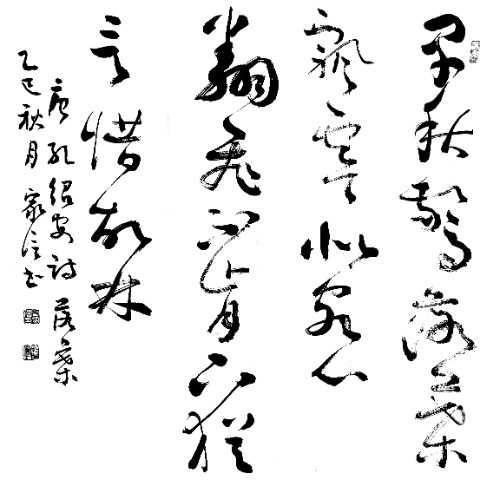 早秋驚落葉
飄零似客心
翻飛不肯下猶
言惜故林
唐孔紹安詩落葉
乙巳秋月家书